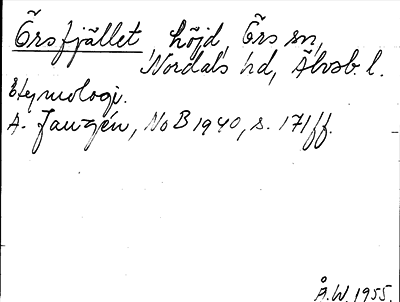 Örsfjället, höjd, Örs sn,
Nordals hd, Älvsb. l.
Etymologi.
A. Janzén, NoB 1940, s. 171 ff.
Å.W. 1955.